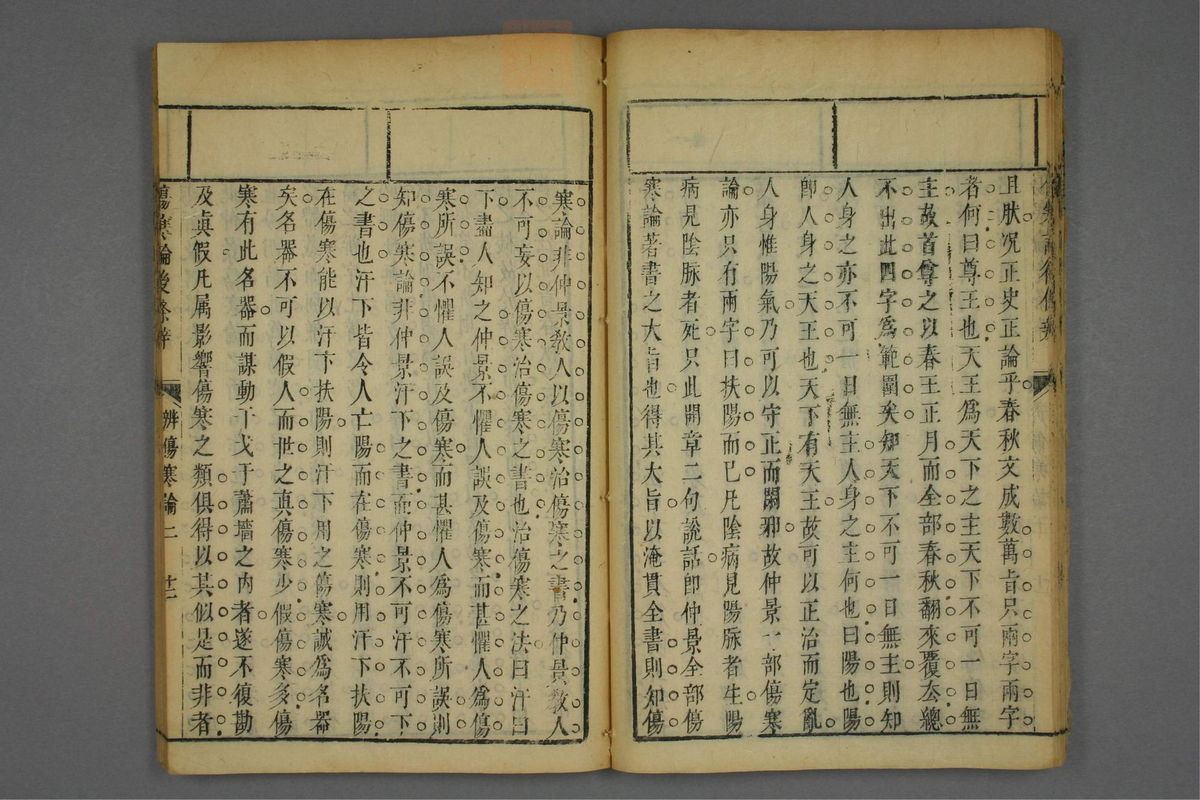 且肰况正史正論乎春秋文成數萬旨只兩字兩字
者何曰尊王也天王爲天下之主天下不可一日無
主故首尊之以春王正月而全部春秋翻來覆去總
不出此四字爲範圍矣知天下不可一日無主則知
人身之亦不可一日無主人身之主何也曰陽也陽
卽人身之天王也天下有天王故可以正治而定亂
人身惟陽氣乃可以守正而闢邪故仲景一部傷寒
論亦只有兩字曰扶陽而已凡陰病見陽脉者生陽
病見陰脉者死只此開章二句說話卽仲景全部傷
寒論著書之大旨也得其大旨以淹貫全書則知傷
寒論非仲景敎人以傷寒治傷寒之書乃仲景敎人
不可妄以傷寒治傷寒之書也治傷寒之法曰汗曰
下盡人知之仲景不懼人誤及傷寒而甚懼人爲傷
寒所誤不懼人誤及傷寒而甚懼人爲傷寒所誤則
知傷寒論非仲景汗下之書而仲景不可汗不可下
之書也汗下皆令人亡陽而在傷寒則用汗下扶陽
在傷寒能以汗下扶陽則汗下用之傷寒誠爲名器
矣名器不可以假人而世之眞傷寒少假傷寒多傷
寒有此名器而謀動干戈于蕭墻之内者遂不復勘
及眞假凡属影響傷寒之類俱得以其似是而非者
傷寒論後 辨傷寒論二 十二